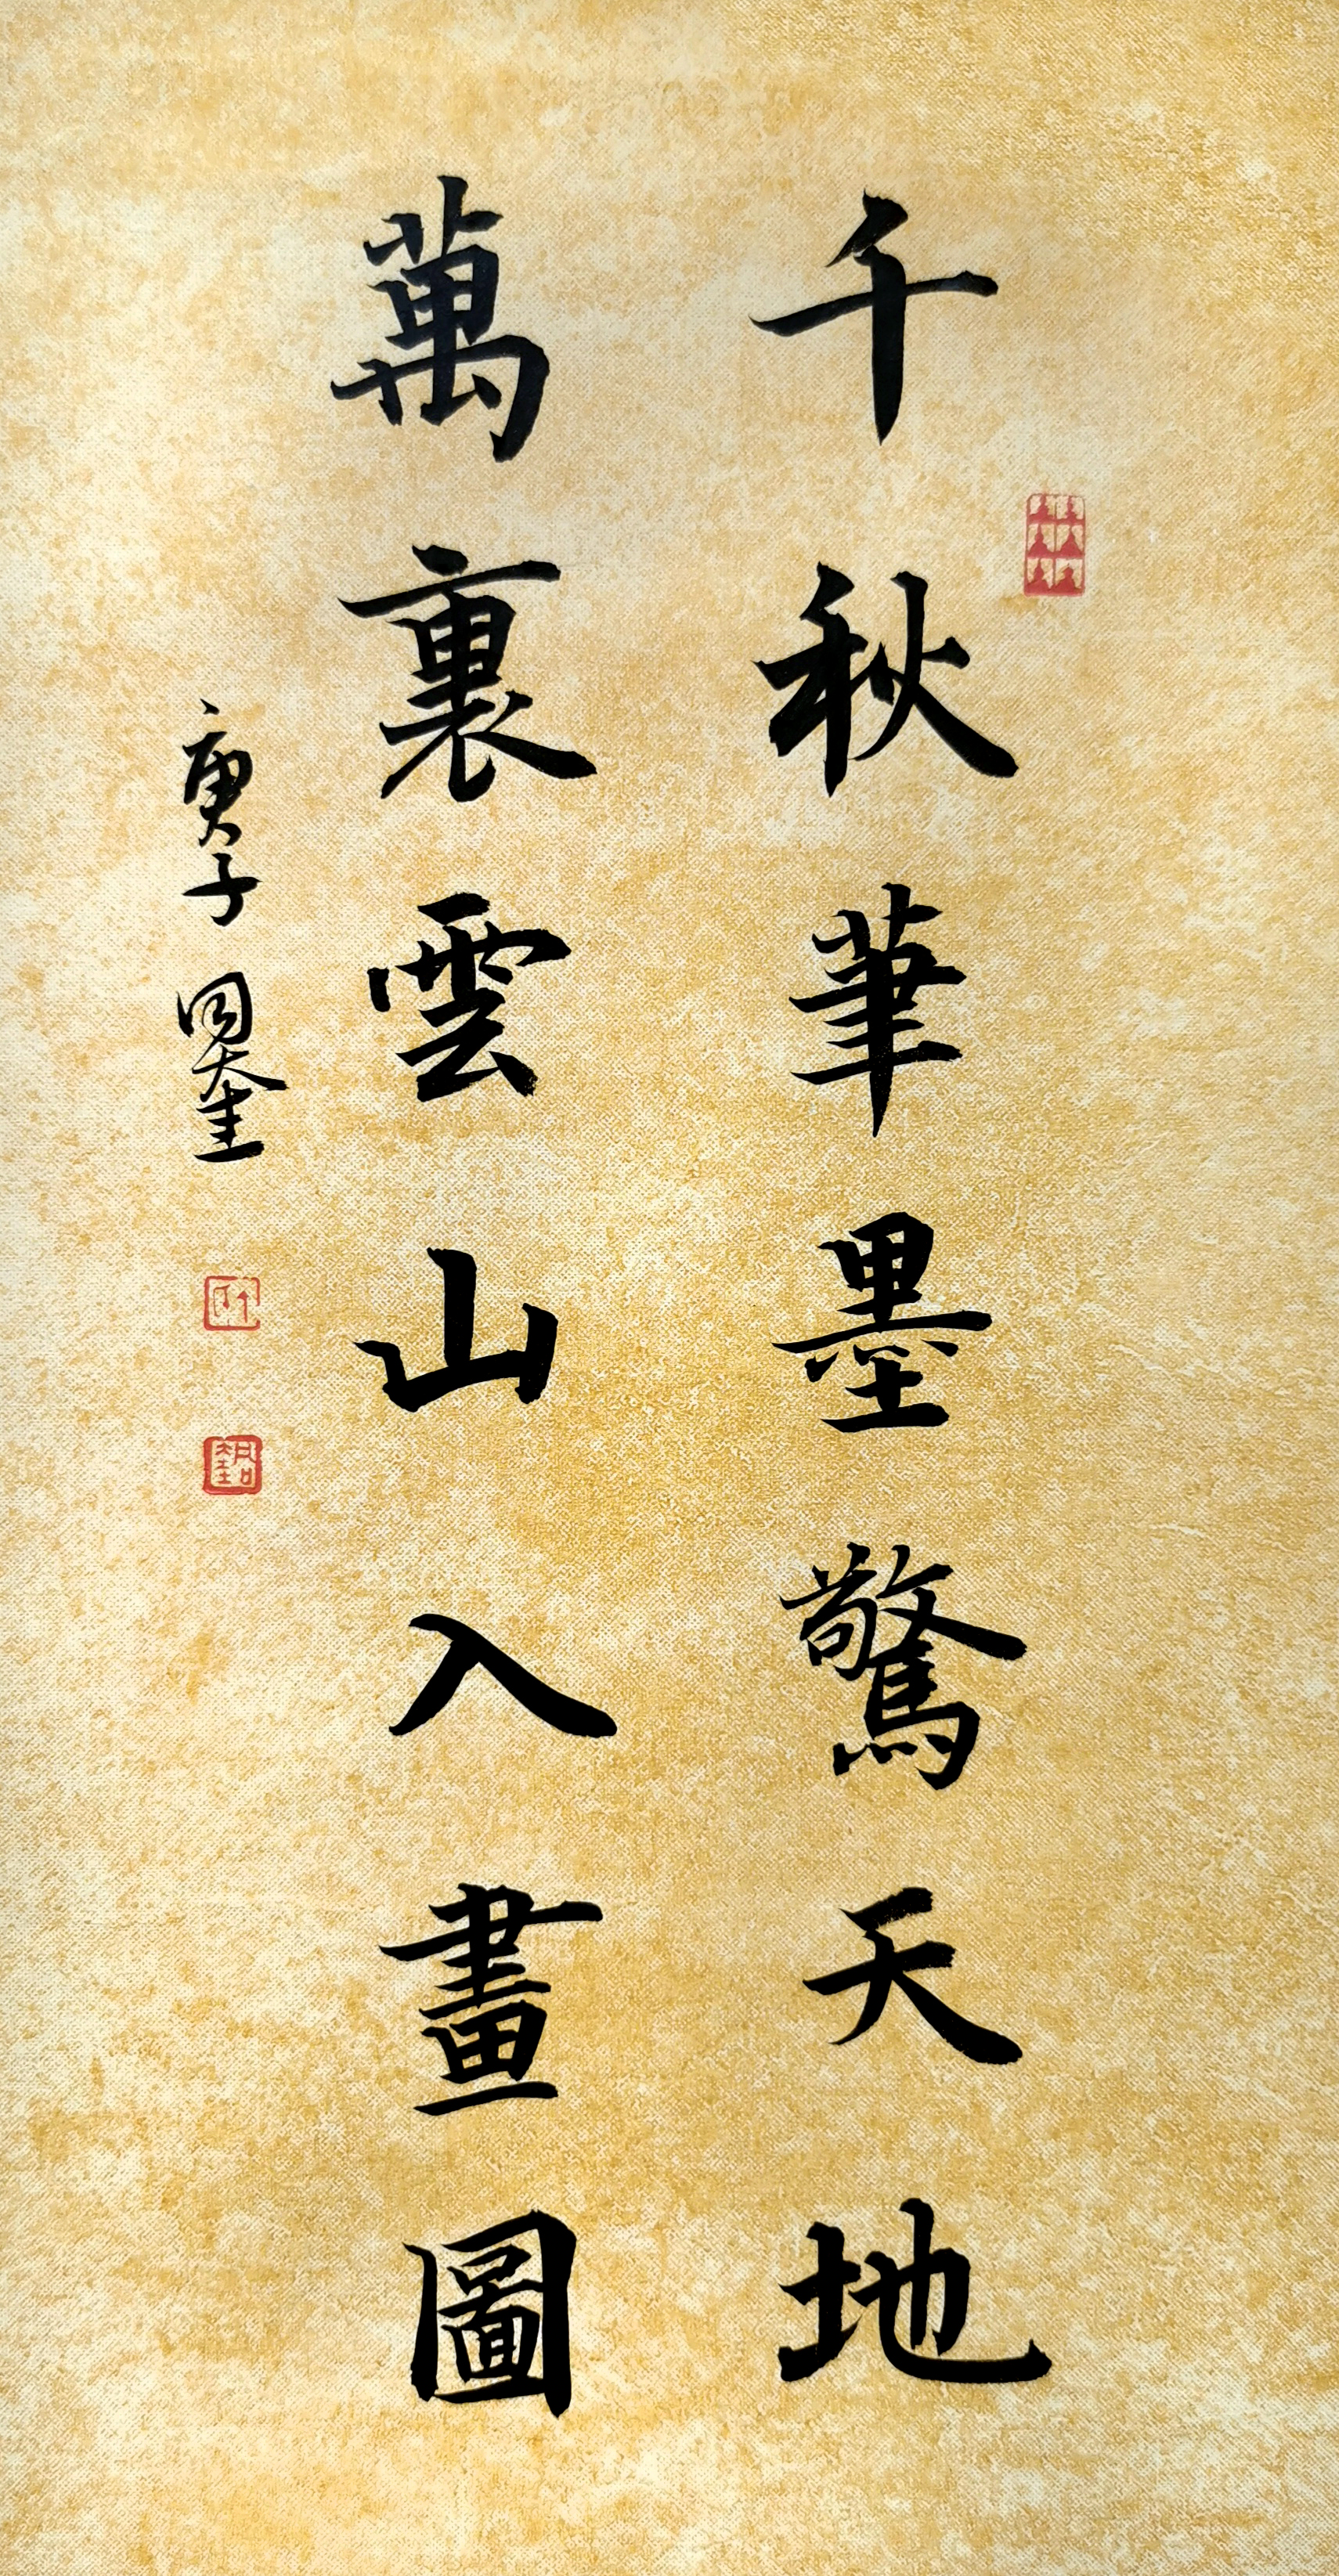 千秋筆墨驚天地
萬裏雲山入畫圖
庚子